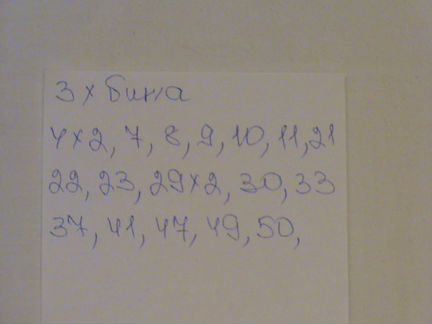 3 х бина
4х2, 7, 8, 9, 10, 11, 21
22, 23, 29х2, 30, 33
37, 41, 47, 49, 50,